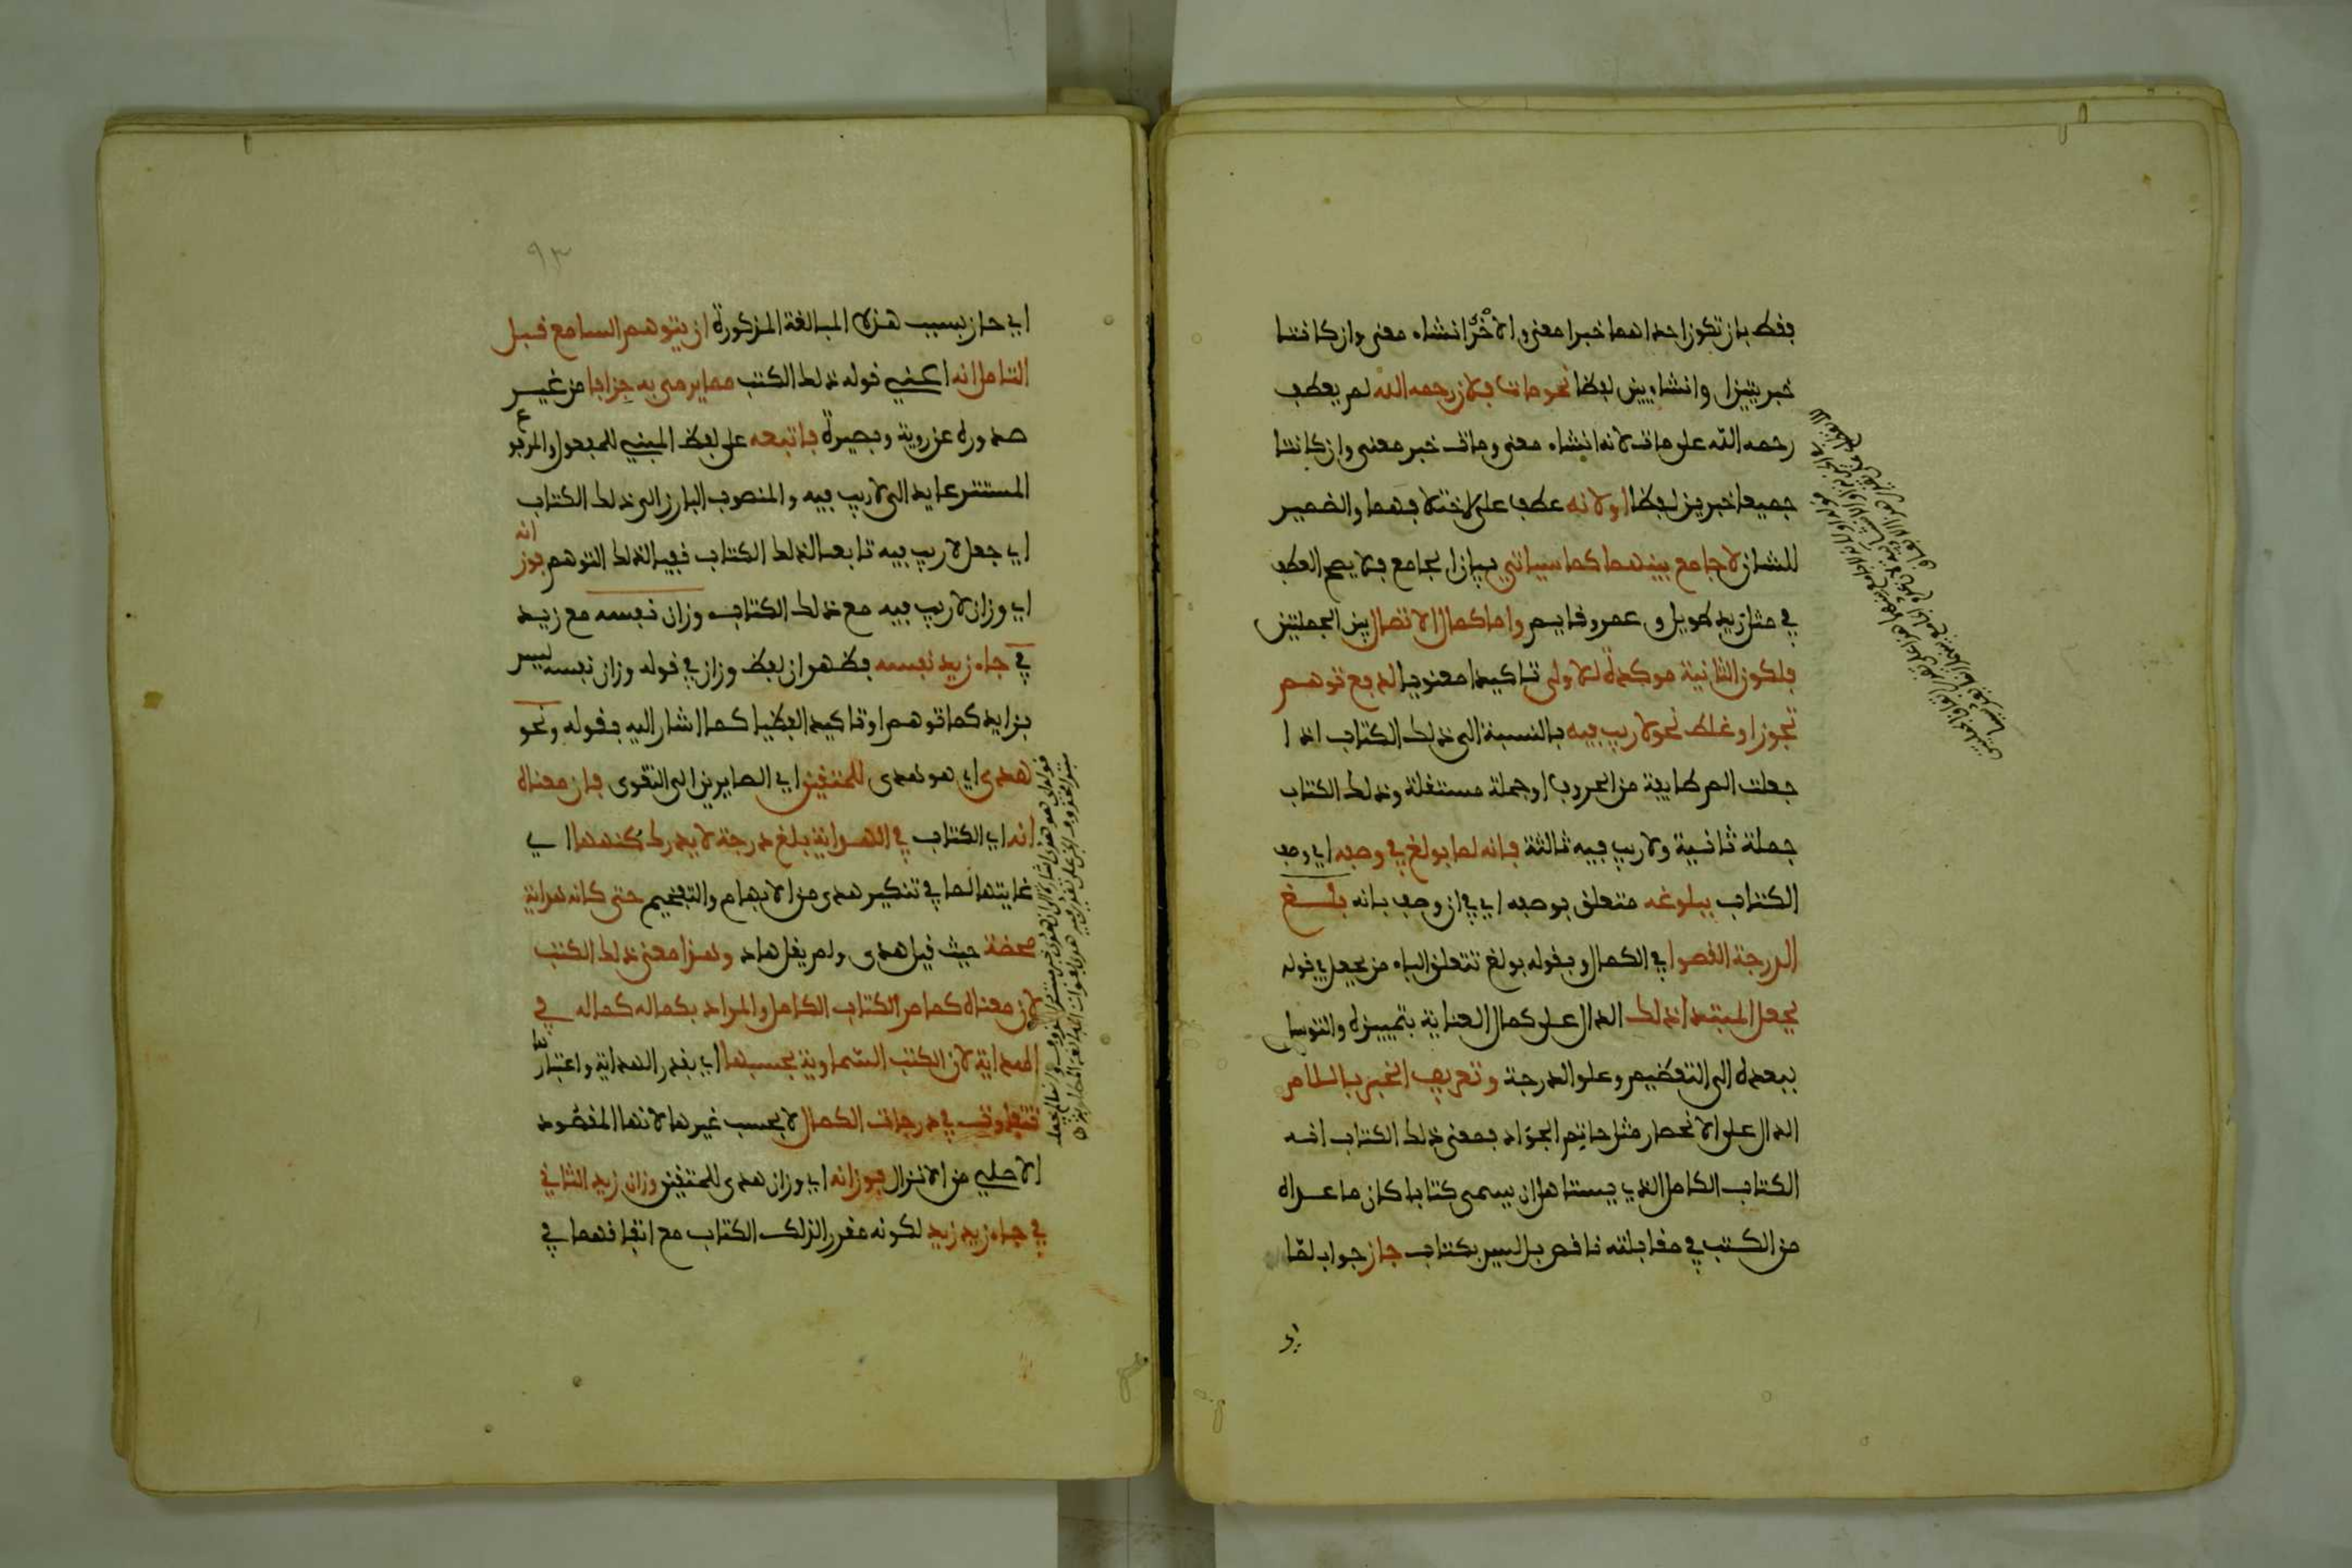 فقط بان تكون احداهما خبرا معنى والاخرى انشاء معنى وان كانتا
خبريتين او انشاءيين لفظا نحو مات فلان رحمه الله لم يعطف
رحمه الله على مات لانه انشاء معنى ومات خبر معنى وان كانتا
جميعا خبرين لفظا او لانه عطف على لاختلافهما والضمير
للشان لا جامع بينهما كما سياتي بيان الجامع فلا يصح العطف
في مثل زيد طويل وعمرو قايم واما كمال الاتصال بين الجملتين
فلكون الثانية موكدة للاولى تاكيدا معنويا لدفع توهم
تجوز او غلط نحو لا ريب فيه بالنسبة الى ذلك الكتاب اذا
جعلت الم طايفة من الحروف او جملة مستقلة وذلك الكتاب
جملة ثانية ولا ريب فيه ثالثة فانه لما بولغ في وصفه اي وصف
الكتاب ببلوغه متعلق بوصفه اي في ان وصف بانه بلغ
الدرجة القصوا في الكمال وبقوله بولغ تتعلق الباء من يجعل في قوله
يجعل المبتدا ذلك الدال على كمال العناية بتمييزه والتوسل
ببعده الى التعظيم وعلو الدرجة وتعريف الخبر باللام
الدال على الانحصار مثل حاتم الجواد فمعنى ذلك الكتاب انه
الكتاب الكامل الذي يستاهل ان يسمى كتابا كان ما عداه
من الكتب في مقابلته ناقص بل ليس بكتاب جاز جواب لما
اي
٩٣
اي جاز بسبب هذه المبالغة المذكورة ان يتوهم السامع قبل
التامل انه اعني قوله ذلك الكتب مما يرمى به جزافا من غير
صدوره عن روية وبصيرة فاتبعه على لفظ المبني للمفعول والمرفوع
المستتر عايد الى لا ريب فيه والمنصوب البارز الى ذلك الكتاب
اي جعل لا ريب فيه تابعا لذلك الكتاب نفيا لذلك التوهم فوزانه
اي وزان لا ريب فيه مع ذلك الكتاب وزان نفسه مع زيد
في جاء زيد نفسه فظهر ان لفظ وزان في قوله وزان نفسه ليس
بزايد كما توهم او تاكيدا لفظيا كما اشار اليه بقوله ونحو
هدى اي هو هدى للمتقين اي الصايرين الى التقوى فان معناه
انه اي الكتاب في الهداية بلغ درجة لا يدرك كنهها اي
غايتها لما في تنكير هدى من الابهام والتفخيم حتى كانه هداية
محضة حيث قيل هدى ولم يقل هاد وهذا معنى ذلك الكتب
لان معناه كما مر الكتاب الكامل والمراد بكماله كماله في
الهداية لان الكتب السماوية بحسبها اي بقدر الهداية واعتبارها
تتفاوت في درجات الكمال لا بحسب غيرها لانها المقصود
الاصلي من الانزال فوزانه اي وزان هدى للمتقين وزان زيد الثاني
في جاء زيد زيد لكونه مقررا لذلك الكتاب مع اتفاقهما في